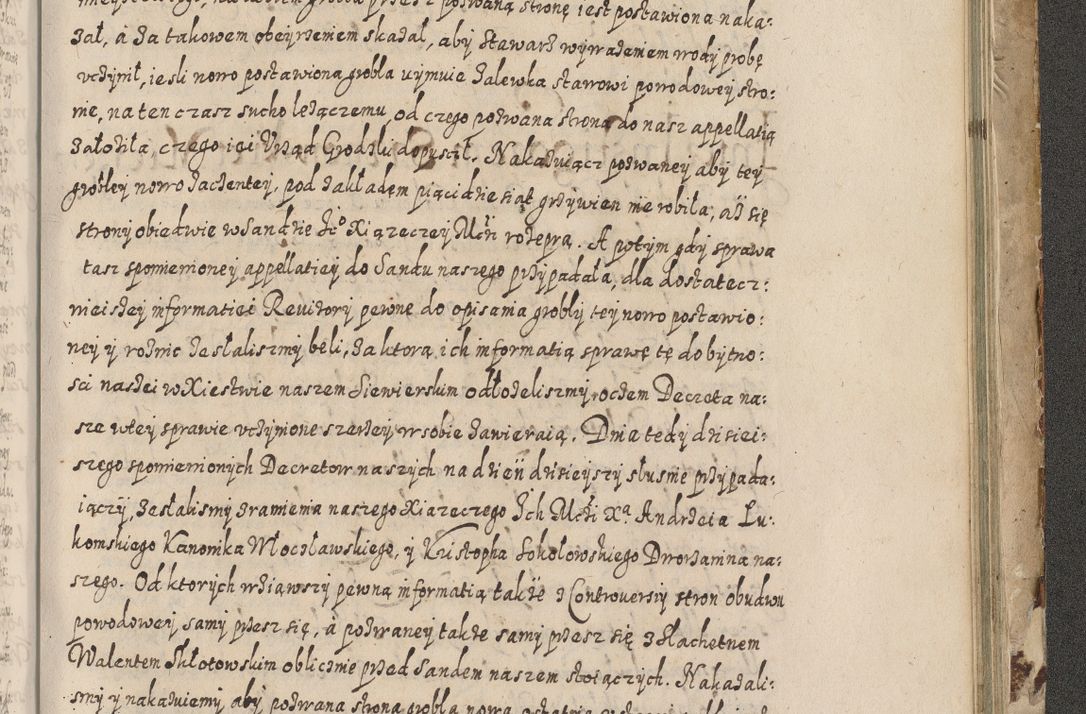 zał, á za takowem obeyrzeniem skazał, aby Stawarz wywazeniem wody probę
vczynił, iesli nowo postawiona grobla uymuie zalewka stawowi powodowey stro:
nie, na ten czasz sucho lezączemu, od czego pozwana strona do nasz appellatią
załoziła, czego iei Vrząd Grodzki dopuscił. Nakazuiącz pozwaney aby tey
grobley nowo zacżentey, pod zakładem piącidziesiąt grzywien nie robiła, aż się
strony obiedwie w Sandzie Jeo Xiązeczey Mczi rozeprą. A potym gdy sprawa
tasz spomienioney appellatiey do Sandu naszego przypadała, dla dostatecz:
nieiszey informatiei Rewizory pewne do opisania grobly tey nowo postawio:
ney y roznic zesłaliszmy beli, za ktorą ich informatią sprawę tę do bytno:
sci naszei w Xiestwie naszem Siewierskim odłozeliszmy, oczem Decreta na:
sze wtey sprawie vczynione szerzey w sobie zawieraią. Dnia tedy dzisiei:
szego spomienionych Decretow naszych na dzień dzisieyszy słusnie przypada:
iączy, zesłalismy z ramienia naszego Xiazeczego Ich Mczi Xa Andrzeia Lu:
komskiego Kanonika Włoczławskiego, y Krisztopha Sokołowskiego Dworzanina na:
szego. Od ktorych wziąwszy pewną informatią także z Controuersiy stron obudwu
powodowey samy przesz się, á pozwaney takze samy przesz się z Slachetnem
Walentem Skłotowskim obliczme przed Sandem naszem stoiączych. Nakazali:
smy y nakazuiemy aby pozwana strona grobla nowa